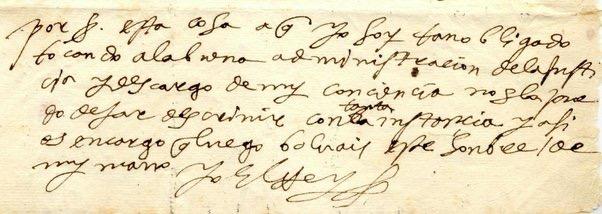 por q. esta cosa a q yo soy tan obligado
tocando a la buena administracion de la justi
cia y descargo de my conciencia no sela pue
do dexar de screvir con tanta instancia y asi
os encargo q luego bolvais este hombre / de
my mano. Yo El Rey